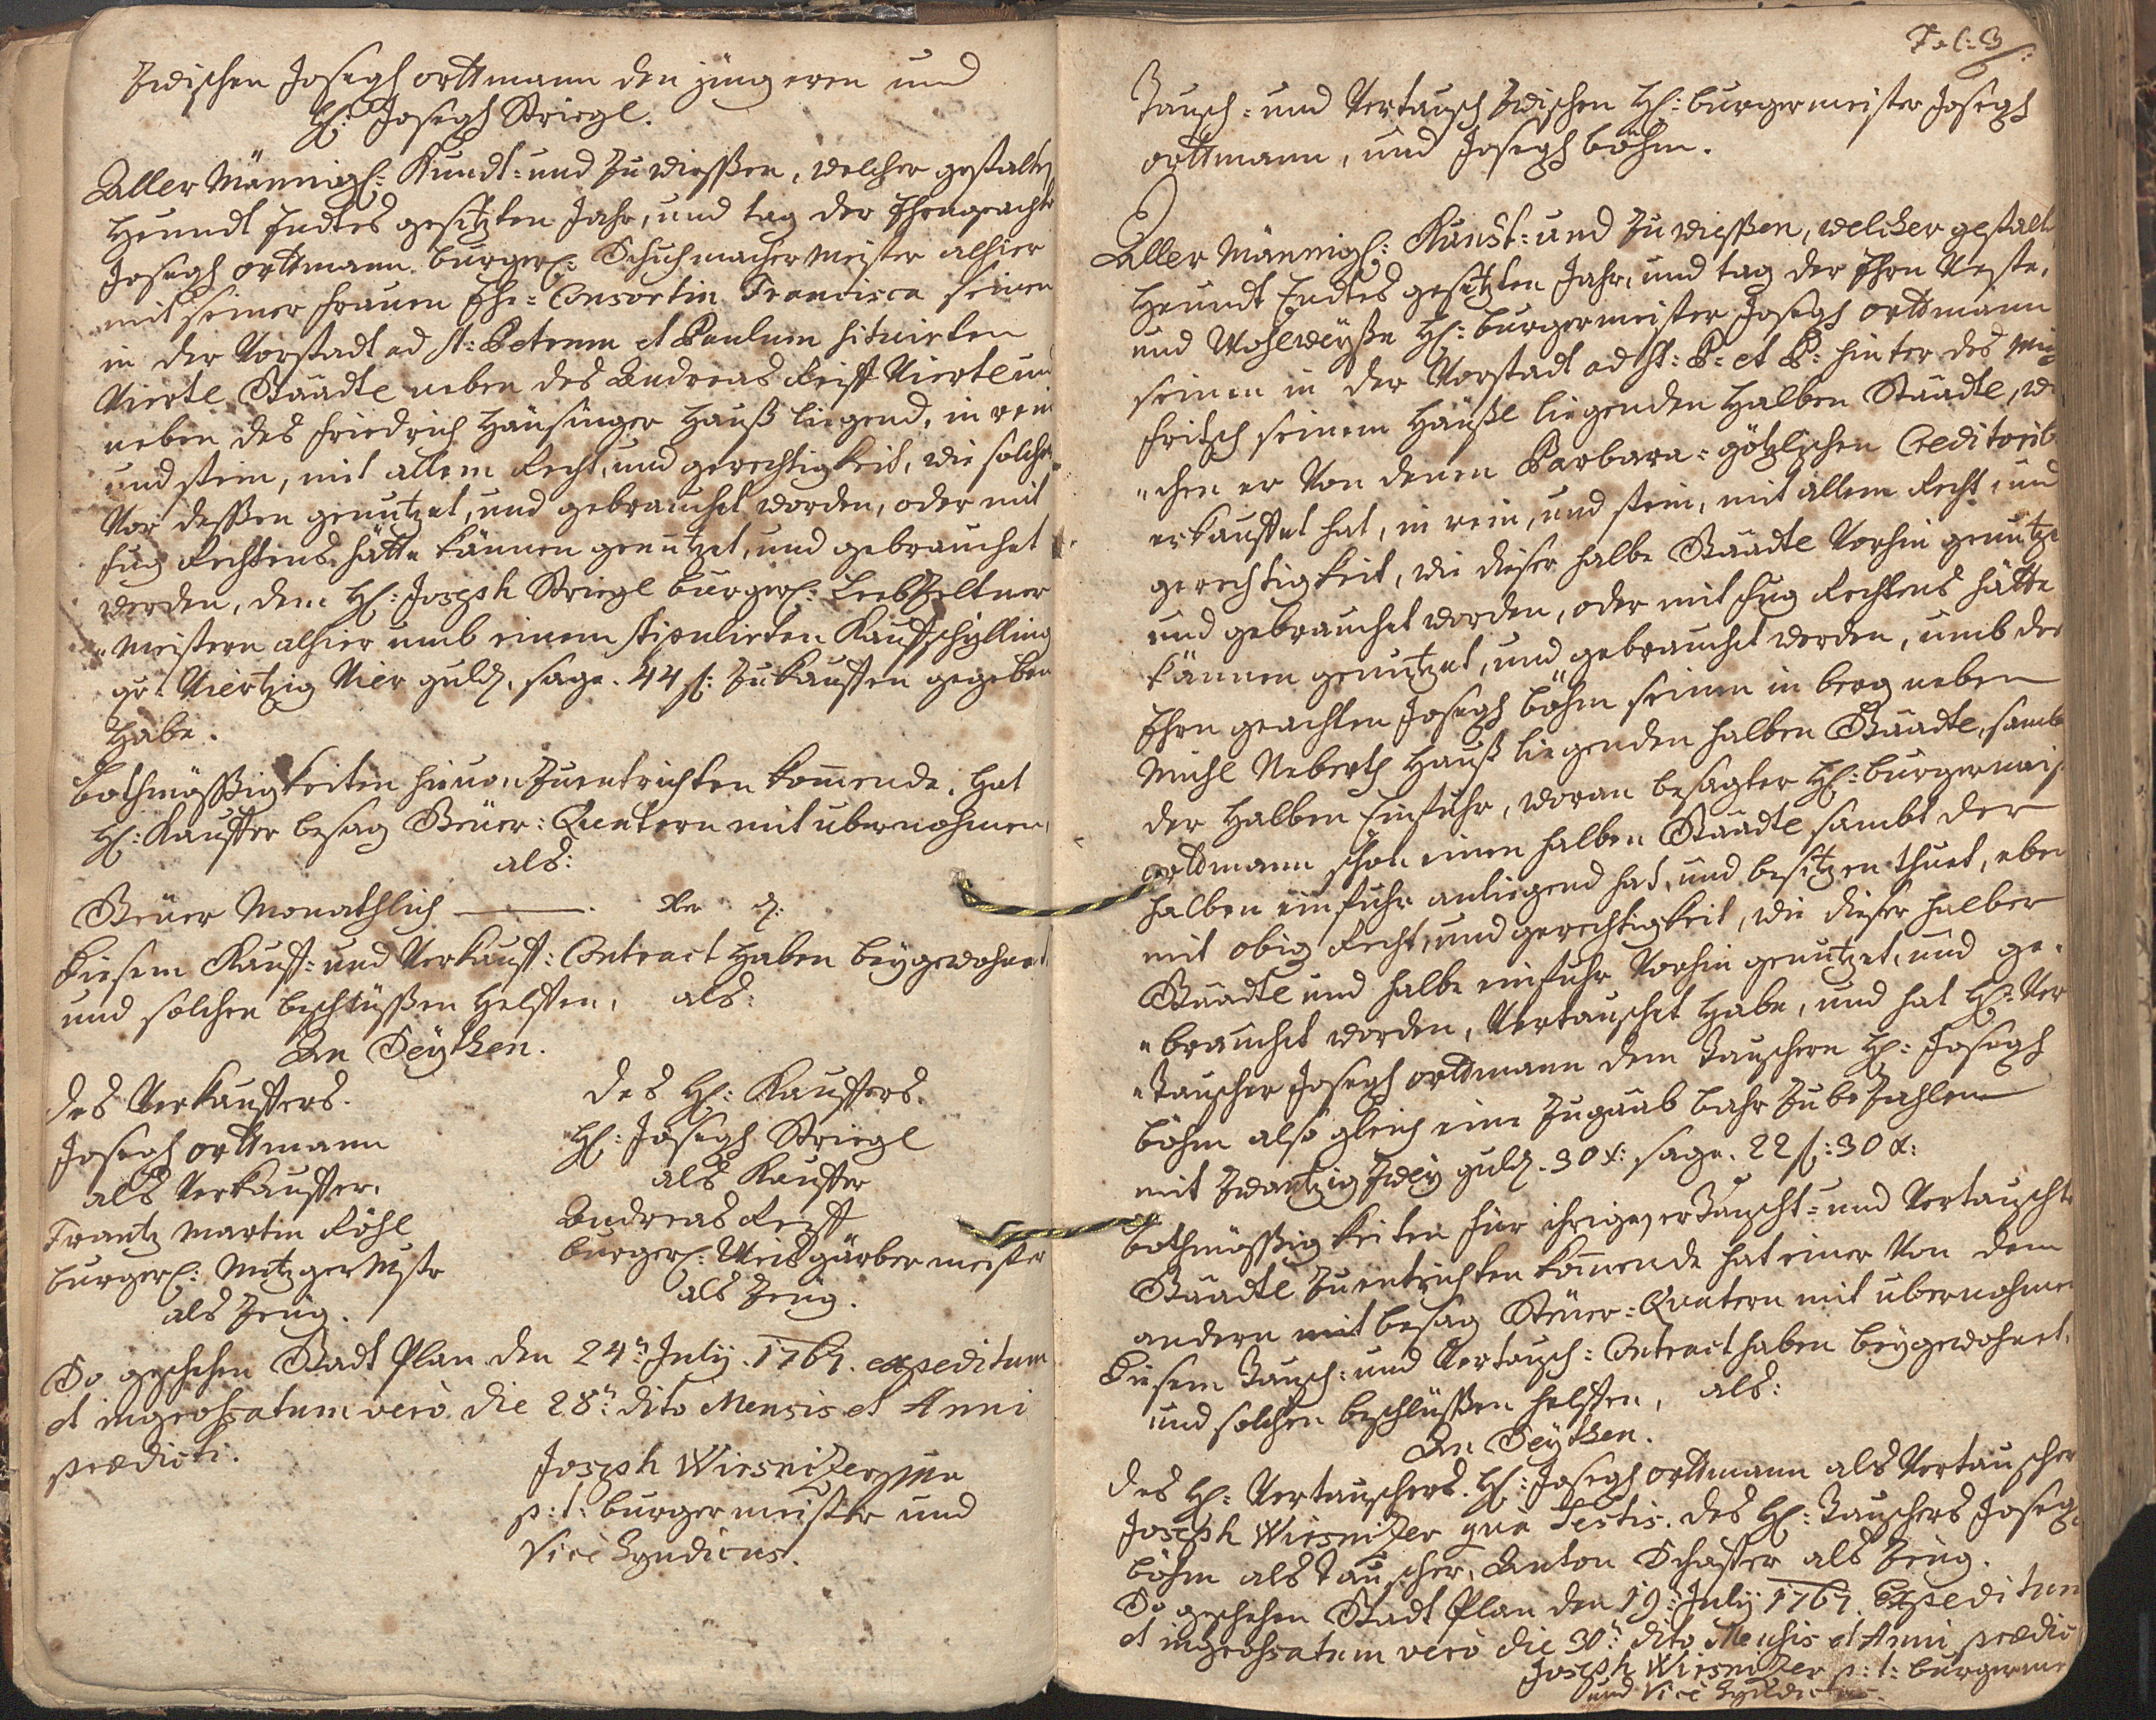 Zwischen Joseph Orttmann den jüngeren und
H: Joseph Striegl.
Aller Männigl: Kundt- und Zu wießen, welcher gestalten
Heundt Endtes gesetzten Jahr, und tag der Ehrengeachte
Joseph Orttmann burgerl: Schuhmacher Meister alhier
mit seiner frauen Ehe-Consortin Francisca seinen
in der Vorstadt ad St: Petrum et Paulum situirten
Viertl Stäadtl neben des Andreas Reiff Viertl und
neben des Friedrich Hänsinger Hauß liegend, in rein
und stein, mit allem Recht, und gerechtigkeit, wie solches
Vor deßen genutzet, und gebrauchet worden, oder mit
fug Rechtens hätte können genutzet, und gebrauchet
werden, dem H: Joseph Striegl burgerl: Lebzeltner
"meistern alhier umb einem stipulirten Kauffschylling
pr Viertzig Vier guld, sage. 44 f: Zukauffen gegeben
Habe.
bothmäßigkeiten hievon Zuentrichten komende, hat
H: Kauffer besag Steüer-Quatern mit übernohmen,
als:
Steüer Monathlich ——— . xr d:
Diesem Kauff- und Verkauff-Contract haben beygewohnet
und solchen beschlüßen helffen, als:
An Seythen.
des Verkauffers. des H: Kauffers.
Joseph Orttmann H: Joseph Striegl
als Verkauffer. als Kauffer
Frantz Martin Röhl Andreas Reiff
burgerl: Metzger Mstr burgerl: Weisgärber meister
als Zeüg. als Zeüg.
So geschehen Stadt Plan den 24n July 1767. expeditum
et ingrossatum vero die 28n dito Mensis et Anni
prædicti.
Joseph Wirsnizer mpa
p:t: burgermeister und
Vice Syndicus.
Fol: 3
Tausch- und Vertausch Zwischen H: burgermeister Joseph
Orttmann, und Joseph Böhm.
Aller Männigl: Kundt- und Zu wießen, welcher gestalt
Heundt Endtes gesetzten Jahr, und tag der Ehrn Veste,
und Wohlweyße H: burgermeister Joseph Orttmann
seinen in der Vorstadt ad St: P: et P: hinter des
Fritsch seinem Häußl liegenden halben Stäadtl, we
"chen er Von denen Barbara-götzlischen Creditorib
erkauffet hat, in rein, und stein, mit allem Recht, und
gerechtigkeit, wie dieser halbe Stäadtl Vorhin genutzt
und gebrauchet worden, oder mit fug Rechtens hätte
können genutzet, und gebrauchet werden, umb des
Ehrn geachten Joseph Böhm seinen in berg neben
Michl Neberth Hauß liegenden halben Stäadtl, sambt
der halben Einfuhr, woran besagter H: burgermeis
Orttmann schon einen halben Stäadtl sambt der
halben einfuhr anliegend hat, und besitzen thuet, eben
mit obig Recht, und gerechtigkeit, wie dieser halber
Stäadtl und halbe einfuhr Vorhin genutzet, und ge-
"brauchet worden, Vertauschet habe, und hat H: Ver
"tauscher Joseph Orttmann dem Tauschern H: Joseph
Böhm also gleich eine Zugaab bahr Zubezahlen
mit Zwantzig Zwey guld. 30 x: sage. 22 f: 30 x:
bothmäßigkeiten für ihrigen ertauscht- und Vertauschte
Stäadtl Zuentrichten komende hat einer Von dem
andern mit besag Steüer-Quatern mit übernohmen
Diesem Tausch- und Vertausch-Contract haben beygewohnet,
und solchen beschlüßen helffen, als:
An Seythen.
des H: Vertauschers. H: Joseph Orttmann als Vertauscher
Joseph Wirsnizer qua Testis. des H: Tauschers Joseph
Böhm als Tauscher, Anton Schaffer als Zeüg.
So geschehen Stadt Plan den 19n July 1767. Expeditum
et ingrossatum vero die 30n dito Mensis et Anni prædic
Joseph Wirsnizer p:t: burgerme
und Vice Syndicus.